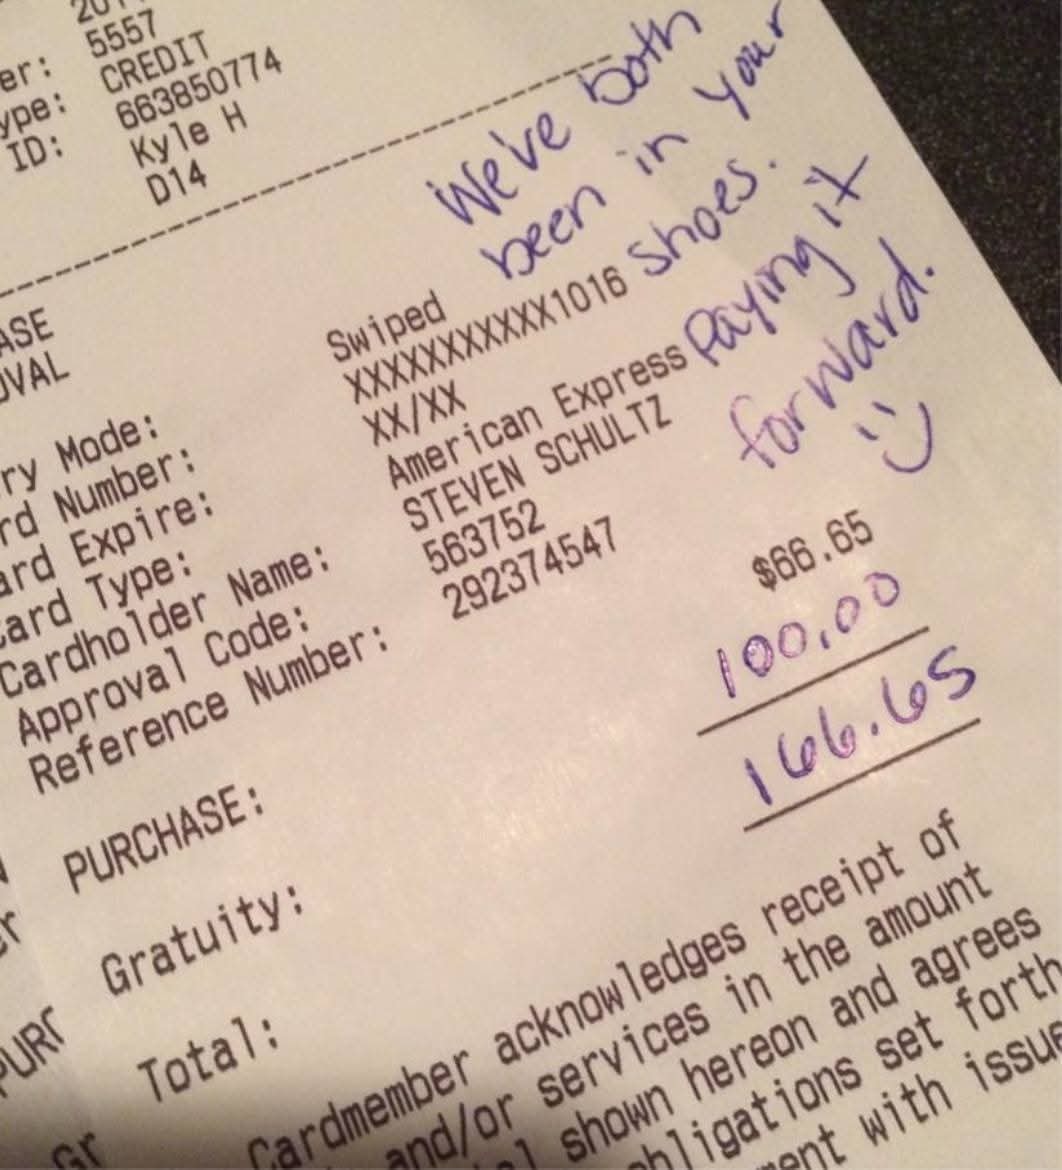 201
er: 5557
ype: CREDIT
ID: 663850774
Kyle H
D14
We've both
been in your
shoes.
Paying it
forward.
ASE
OVAL
ry Mode: Swiped
rd Number: XXXXXXXXXXX1016
ard Expire: XX/XX
Card Type: American Express
Cardholder Name: STEVEN SCHULTZ
Approval Code: 563752
Reference Number: 292374547
PURCHASE: $66.65
Gratuity: 100.00
Total: 166.65
Cardmember acknowledges receipt of
and/or services in the amount
shown hereon and agrees
obligations set forth
ment with issue
er
PURC
Gr